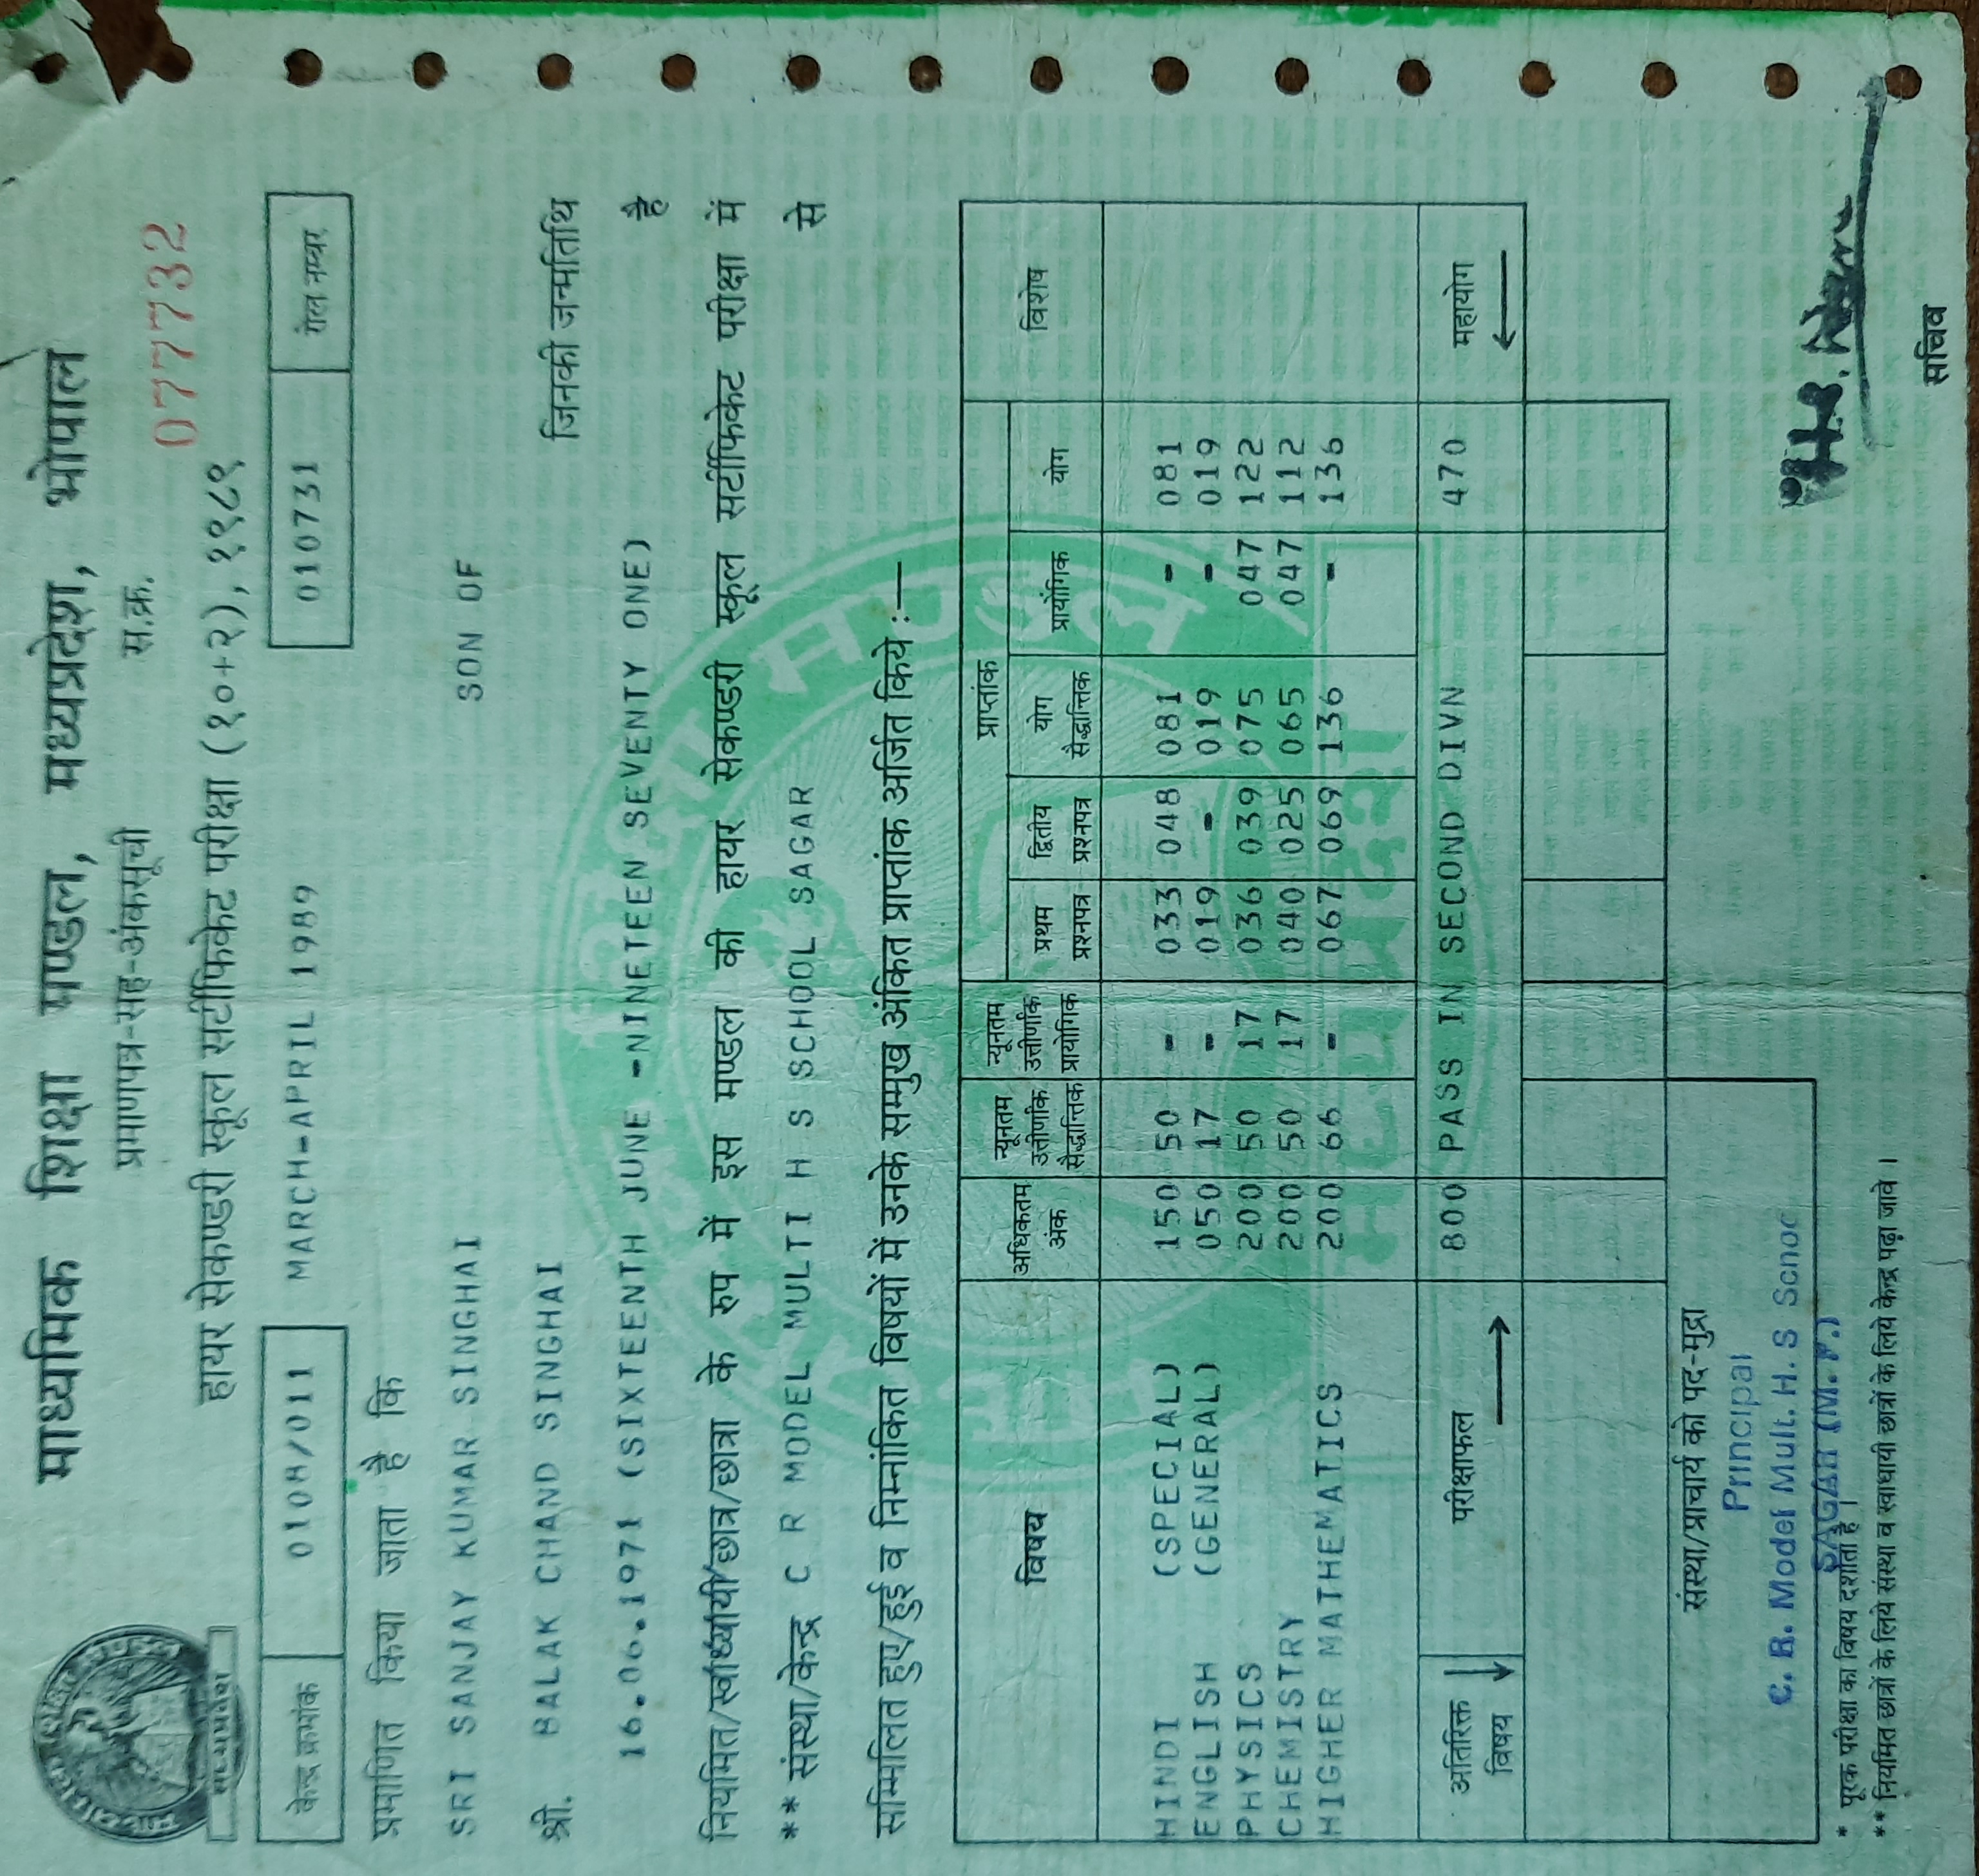 माध्यमिक शिक्षा मण्डल, मध्यप्रदेश, भोपाल
प्रमाणपत्र-सह-अंकसूची स.क्र. 077732
हायर सेकण्डरी स्कूल सर्टीफिकेट परीक्षा (१०+२), १९८९
केन्द्र क्रमांक 0108/011 MARCH-APRIL 1989 010731 रोल नम्बर
प्रमाणित किया जाता है कि
SRI SANJAY KUMAR SINGHAI SON OF
श्री. BALAK CHAND SINGHAI जिनकी जन्मतिथि
16.06.1971 (SIXTEENTH JUNE -NINETEEN SEVENTY ONE) है
नियमित/स्वाध्यायी/छात्र/छात्रा के रुप में इस मण्डल की हायर सेकण्डरी स्कूल सर्टीफिकेट परीक्षा में
** संस्था/केन्द्र C R MODEL MULTI H S SCHOOL SAGAR से
सम्मिलित हुए/हुई व निम्नांकित विषयों में उनके सम्मुख अंकित प्राप्तांक अर्जित किये :—
प्राप्तांक
विषय अधिकतम अंक न्यूनतम उत्तीर्णांक सैद्धान्तिक न्यूनतम उत्तीर्णांक प्रायोगिक प्रथम प्रश्नपत्र द्वितीय प्रश्नपत्र योग सैद्धान्तिक प्रायोगिक योग विशेष
HINDI (SPECIAL) 150 50 - 033 048 081 - 081
ENGLISH (GENERAL) 050 17 - 019 - 019 - 019
PHYSICS 200 50 17 036 039 075 047 122
CHEMISTRY 200 50 17 040 025 065 047 112
HIGHER MATHEMATICS 200 66 - 067 069 136 - 136
अतिरिक्त विषय परीक्षाफल 800 PASS IN SECOND DIVN 470 महायोग
संस्था/प्राचार्य की पद-मुद्रा
Principal
C. R. Model Mult. H. S Schoo
SAGAR (M. P.)
* पूरक परीक्षा का विषय दर्शाता है।
** नियमित छात्रों के लिये संस्था व स्वाध्यायी छात्रों के लिये केन्द्र पढ़ा जावे।
सचिव